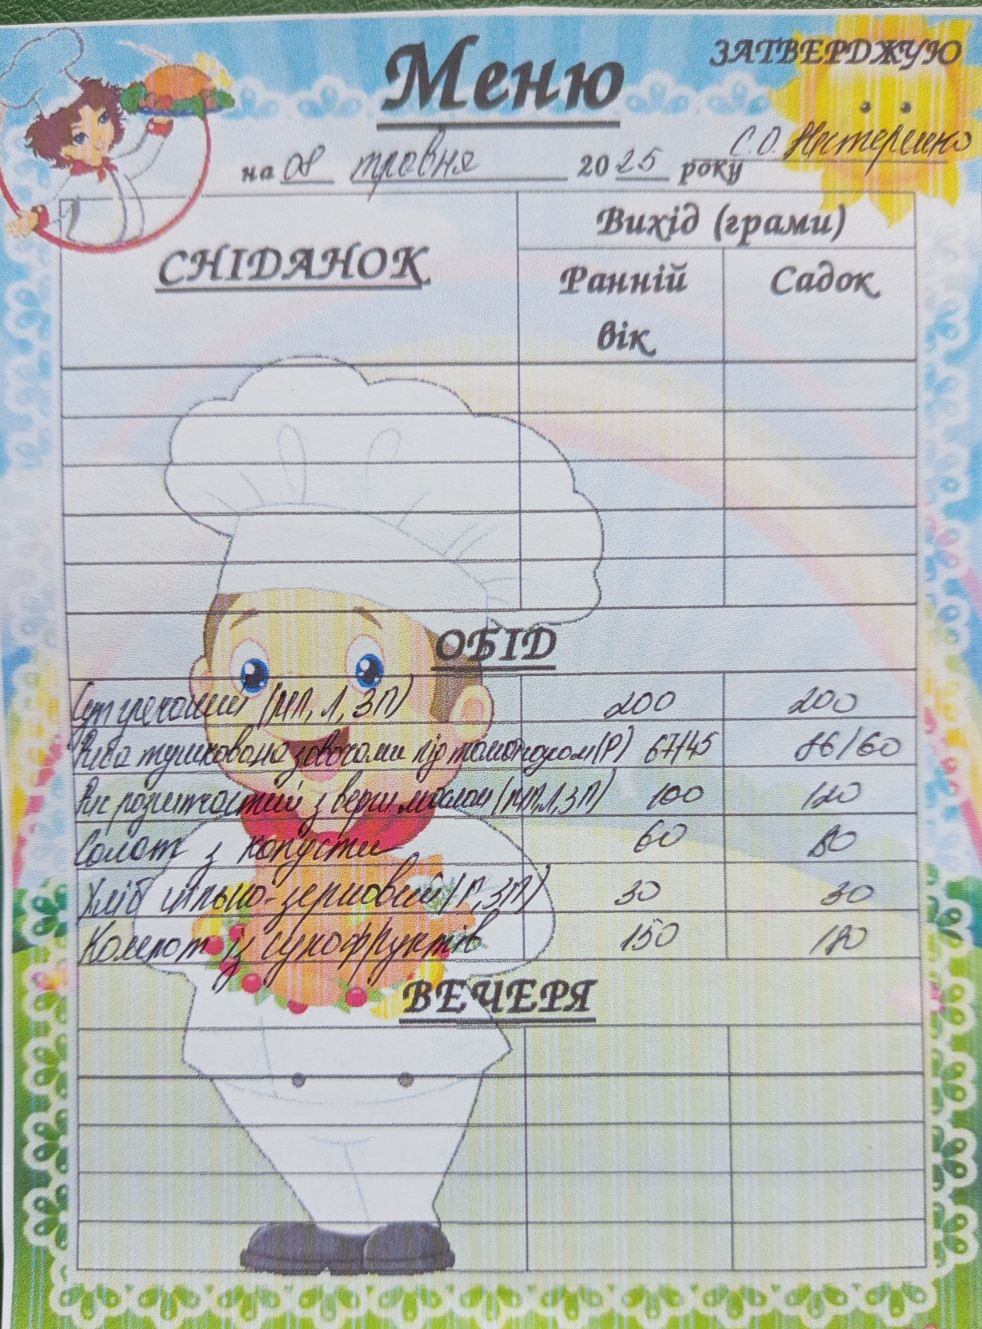 Меню
ЗАТВЕРДЖУЮ
на 08 травня 2025 року С.О. Нестеренко
СНІДАНОК
Вихід (грами)
Ранній вік
Садок
ОБІД
Суп гречаний (МП, Л, ЗП) 200 200
Риба тушкована з овочами під томатом (Р) 67/45 86/60
Рис розсипчастий з верш. маслом (МП, Л, ЗП) 100 120
Салат з капусти 60 80
Хліб цільно-зерновий (Г, ЗП) 30 30
Компот із сухофруктів 150 180
ВЕЧЕРЯ